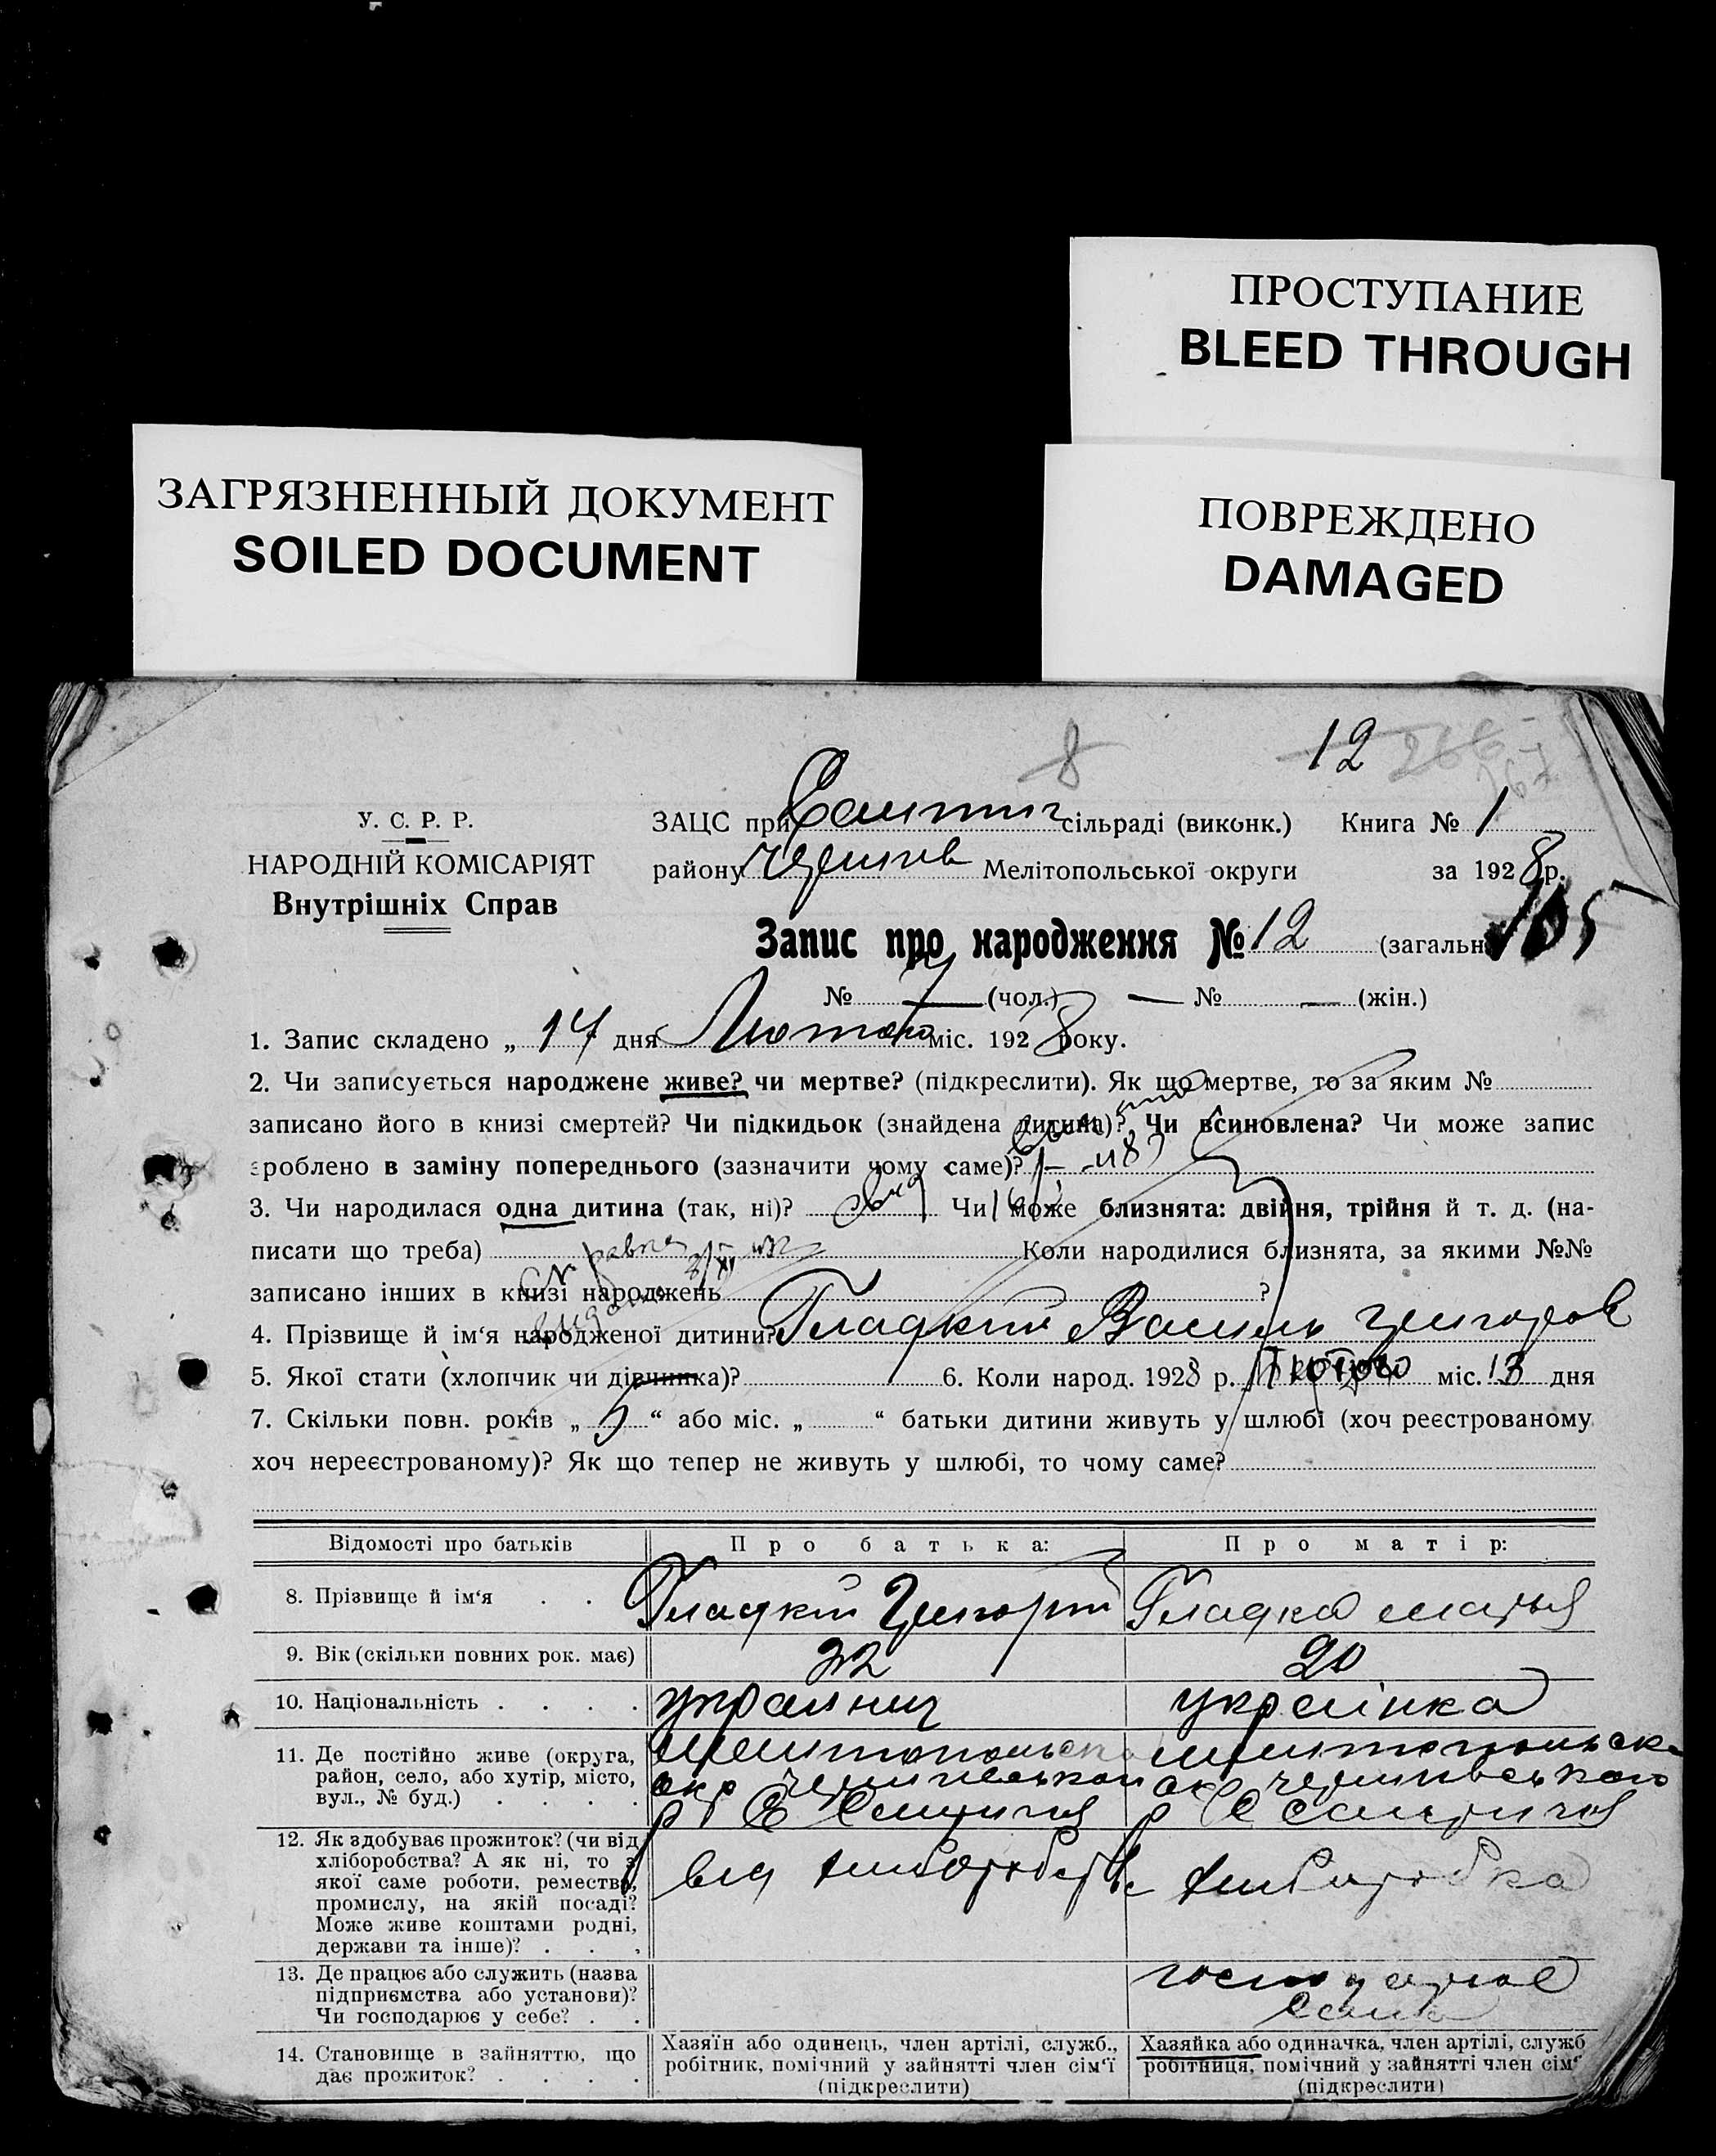 ПРОСТУПАНИЕ
BLEED THROUGH
ЗАГРЯЗНЕННЫЙ ДОКУМЕНТ
SOILED DOCUMENT
ПОВРЕЖДЕНО
DAMAGED
8
12
У. С. Р. Р.
НАРОДНІЙ КОМІСАРІЯТ
Внутрішніх Справ
ЗАЦС при сільраді (виконк.) Книга № 1
району Мелітопольської округи за 1928 р.
Запис про народження № 12 (загальн
№ 7 (чол.) — № — (жін.)
1. Запис складено „ 14 дня Лютого міс. 1928 року.
2. Чи записується народжене живе? чи мертве? (підкреслити). Як що мертве, то за яким №
записано його в книзі смертей? Чи підкидьок (знайдена дитина)? Чи всиновлена? Чи може запис
зроблено в заміну попереднього (зазначити чому саме)?
3. Чи народилася одна дитина (так, ні)? одна Чи може близнята: двійня, трійня й т. д. (на-
писати що треба) Коли народилися близнята, за якими №№
записано інших в книзі народжень ?
4. Прізвище й ім'я народженої дитини? Гладкий Василь Григоров
5. Якої стати (хлопчик чи дівчинка)? 6. Коли народ. 1928 р. Лютого міс. 13 дня
7. Скільки повн. років „ “ або міс. „ “ батьки дитини живуть у шлюбі (хоч реєстрованому
хоч нереєстрованому)? Як що тепер не живуть у шлюбі, то чому саме?
Відомості про батьків Про батька: Про матір:
8. Прізвище й ім'я . . Гладкий Григорій Гладка Марья
9. Вік (скільки повних рок. має) 22 20
10. Національність . . . . українец українка
11. Де постійно живе (округа,
район, село, або хутір, місто,
вул., № буд.) . . . .
Мелитопольск
окр
р
12. Як здобуває прожиток? (чи від
хліборобства? А як ні, то з
якої саме роботи, ремества,
промислу, на якій посаді?
Може живе коштами родні,
держави та інше)? . . .
від хліборобства хліборобка
13. Де працює або служить (назва
підприємства або установи)?
Чи господарює у себе? . .
господарює
14. Становище в зайняттю, що
дає прожиток? . . . .
Хазяїн або одинець, член артілі, служб.,
робітник, помічний у зайнятті член сім'ї
(підкреслити)
Хазяйка або одиначка, член артілі, служб
робітниця, помічний у зайнятті член сім'
(підкреслити)